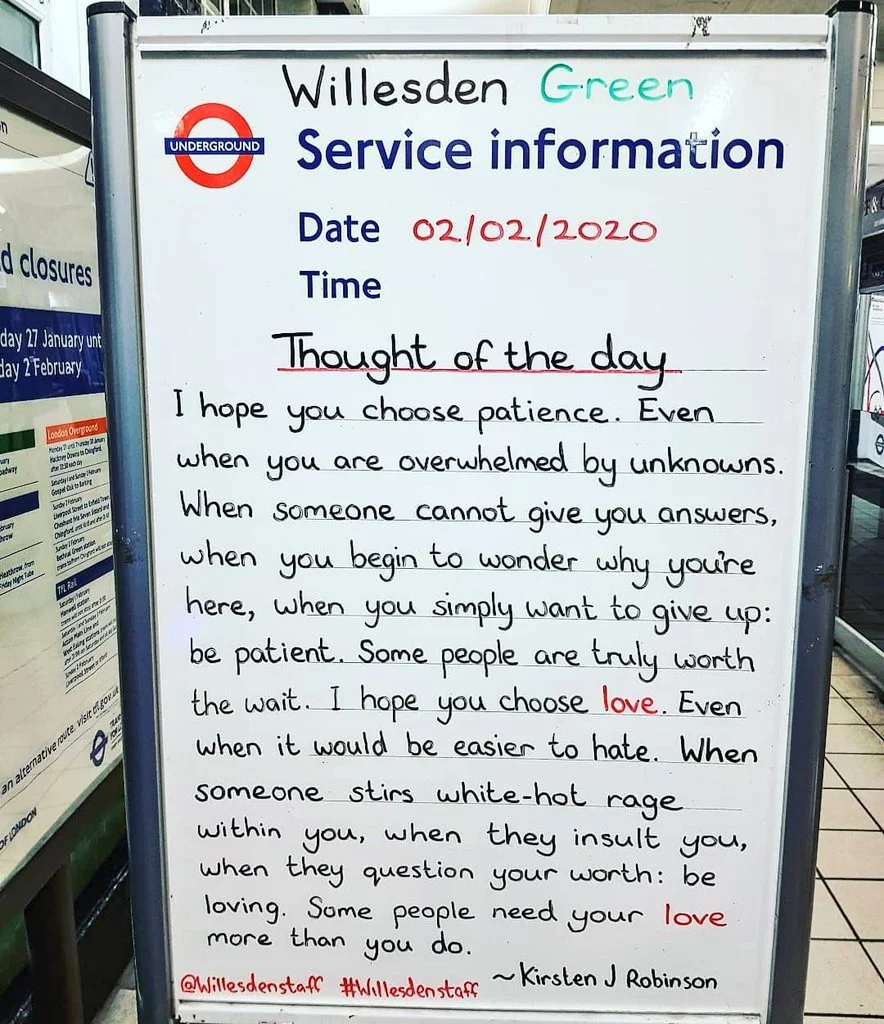 Willesden Green
UNDERGROUND
Service information
Date 02/02/2020
Time
Thought of the day
I hope you choose patience. Even
when you are overwhelmed by unknowns.
When someone cannot give you answers,
when you begin to wonder why you're
here, when you simply want to give up:
be patient. Some people are truly worth
the wait. I hope you choose love. Even
when it would be easier to hate. When
someone stirs white-hot rage
within you, when they insult you,
when they question your worth: be
loving. Some people need your love
more than you do.
@Willesdenstaff #Willesdenstaff ~Kirsten J Robinson
d closures
day 27 January unt
day 2 February
London Overground
TfL Rail
an alternative route, visit tfl.gov.uk
OF LONDON